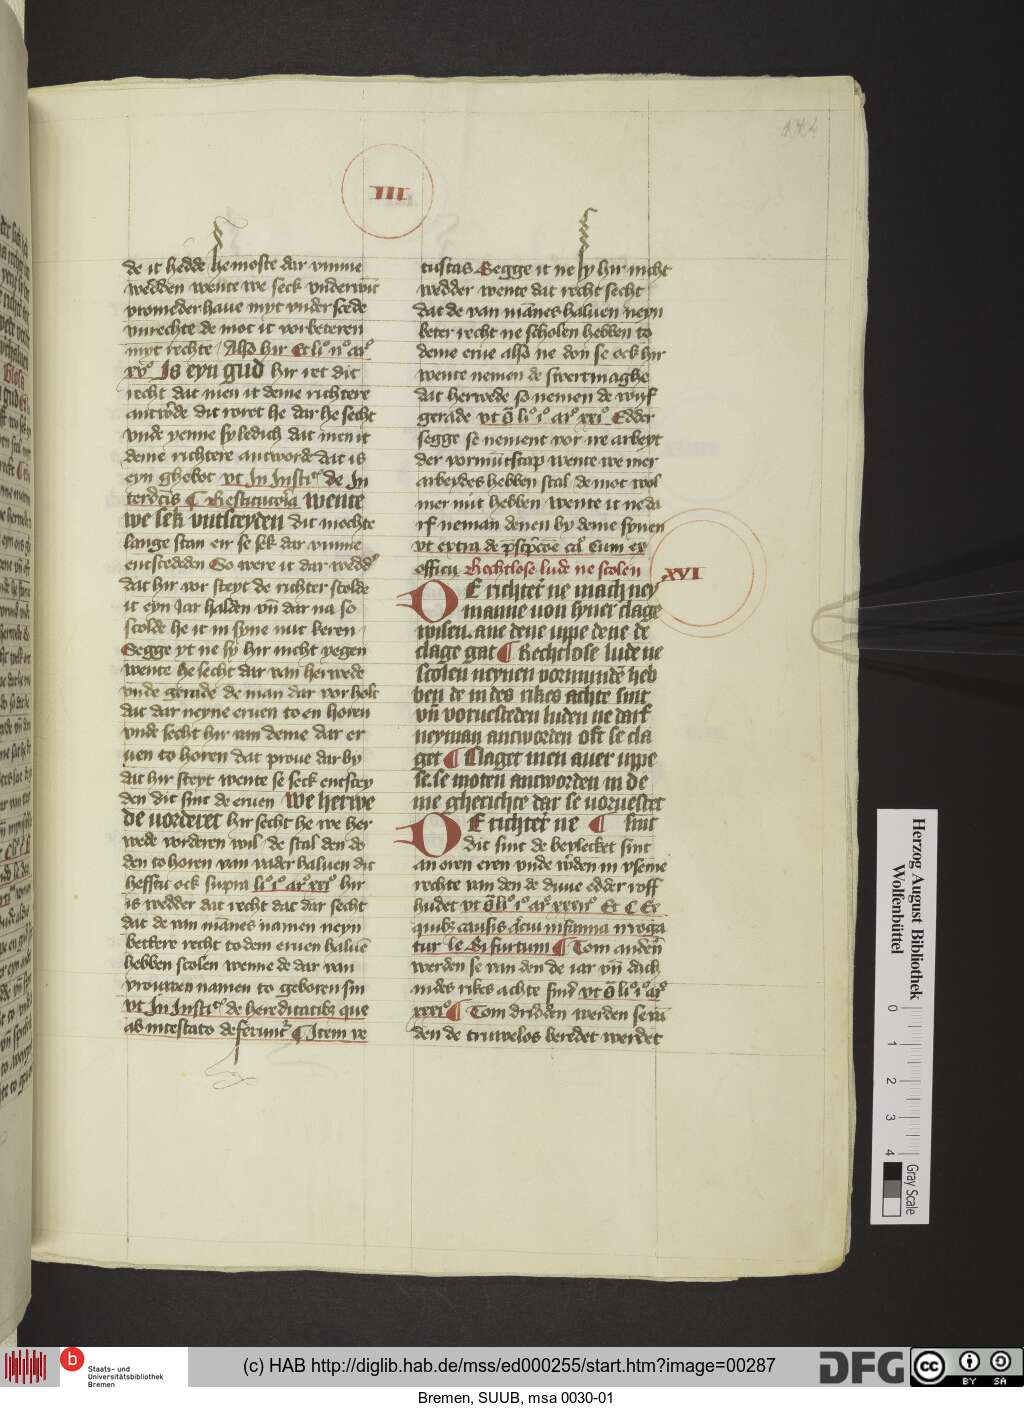 142
III
de it hedde he moste dar vmme
wedden wente we seck vnderwīt
vromeder haue myt vnderscede
vnrechte de mot it vorbeteren
myt rechte Alsꝫ hir Et li° ii° ar°
xv° Is eyn gud hir ret dit
recht dat men it deme richtere
antwꝛde dit wret he dar he secht
vnde yenne sy ledich dat men it
deme richtere antworde dat is
eyn ghebot vt In Insti° de In
terdcis ¶ Restitutoꝛia wente
we sek vntsceyden dit mochte
lange stan eir se sek dar vmme
entscedden So were it dar wedd°
dat hir vor steyt de richter scolde
it eyn Jar halden vn̄ dar na so
scolde he it in syne nut keren
Segge yt ne sy hir nicht yegen
wente he secht dar van herwede
vnde gerade de man dar vor holt
dat dar neyne eruen to en horen
vnde secht hir van deme dar er
uen to horen dat proue dar by
dat hir steyt wente se seck entscey
den dit sint de eruen We herwe
de uorderet hir secht he we her
wede vorderen wil de scal den do
den to horen van vader haluen dit
heffstu ock supra li° i° ar° xxi° hir
is wedder dat recht dat dar secht
dat de van mānes namen neyn
bettere recht to dem eruen haluē
hebben scolen wenne de dar van
vrouwen namen to geboren sin
vt In Insti° de hereditatibꝫ que
ab intestato deferunt² ¶ Item ve
tustas Segge it ne sy hir nicht
wedder wente dat recht secht
dat de van mānes haluen neyn
beter recht ne scholen hebben to
deme erue alsꝫ ne don se ock hir
wente nemen de swertmaghe
dat herwede so nemen de wyf
gerade vt ō li° i° ar° xxi° Edder
segge se nement vor ire arbeyt
der vormūtscap wente we mer
arbeydes hebben scal de mot wol
mer nut hebben wente it ne da
rf neman denen by deme synen
vt extra de p̄scp̄coe ca° Cum ex
officii Rechtlose lude ne scolen
XVI
DE richter ne mach ney
manne uon syner clage
wisen ane dene uppe dene de
clage gat ¶ Rechtlose lude ne
scolen neynen vormundē heb
ben de in des rikes achte sint
vn̄ voruesteden luden ne darf
neyman antworden oft se cla
get ¶ Claget men auer uppe
se se moten antworden in de
me gherichte dar se uoruestet
DE richter ne ¶ sint
dit sint de beylecket sint
an oren eren vnde wꝛden in vseme
rechte van den de duue edder roff
hudet vt ō li° i° ar° xxxvii° Et C Ex
quibꝫ causis
tur le Si furtum ¶ Tom anden̄
werden se van den de iar vn̄ dach
in des rikes achte sint vt ō li° i° ar°
xxxi° ¶ Tom dridden werden se vā
den de truwelos beredet werdet
Herzog August Bibliothek
Wolfenbüttel
0
1
2
3
4
Gray Scale
b
Staats- und
Universitätsbibliothek
Bremen
(c) HAB http://diglib.hab.de/mss/ed000255/start.htm?image=00287
DFG
cc
BY SA
Bremen, SUUB, msa 0030-01